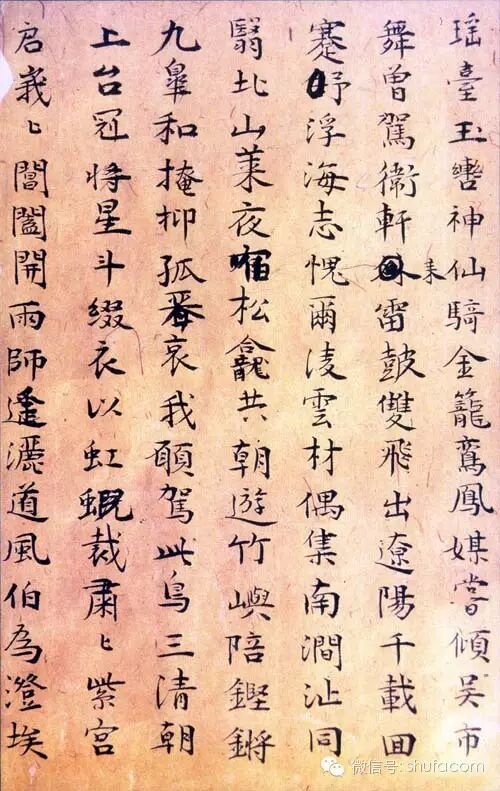 瑶臺玉轡神仙騎金籠鸞鳳媒嘗傾吳市
舞曽駕衛軒来雷鼓雙飛出遼陽千載回
蹇浮海志愧爾凌雲材偶集南澗沚同
翳北山萊夜宿松龕共朝遊竹嶼陪鏗鏘
九皋和掩抑孤哀我願駕此鳥三清朝
上台冠将星斗綴衣以虹蜺裁肅〻紫宮
启峩〻閶闔開雨師遙灑道風伯為澄埃
微信号: shufacom